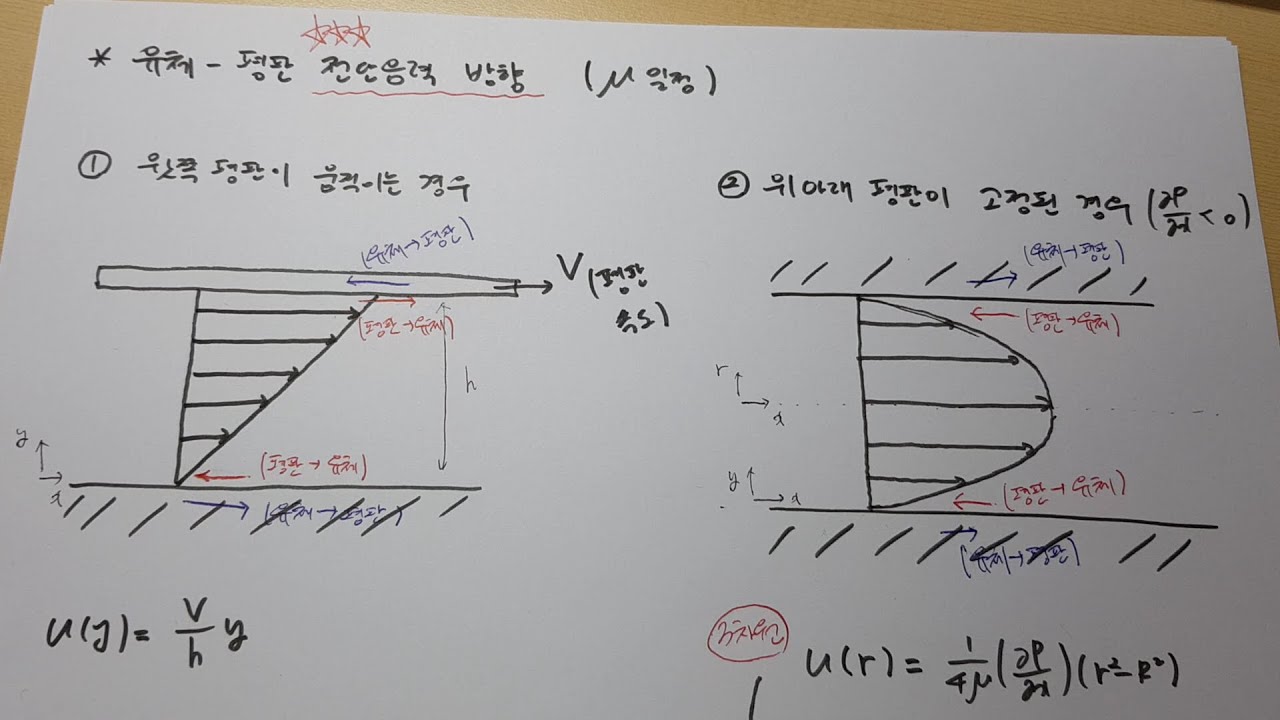 * 유체 - 평판 전단응력 방향 (μ 일정)
① 윗쪽 평판이 움직이는 경우
(유체→평판)
V (평판
속도)
(평판→유체)
h
y
x
(평판→유체)
(유체→평판)
u(y) = V/h y
② 위아래 평판이 고정된 경우 (∂P/∂x < 0)
(유체→평판)
(평판→유체)
r
x
y
x
(평판→유체)
(유체→평판)
u(r) = 1/4μ (∂P/∂x) (r²-R²)